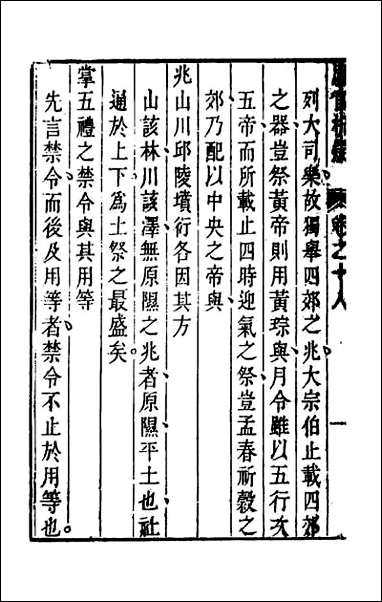 周官析疑 卷之十八 一
列大司樂故獨舉四郊之兆大宗伯止載四郊
之器豈祭黃帝則用黃琮與月令雖以五行次
五帝而所載止四時迎氣之祭豈孟春祈穀之
郊乃配以中央之帝與
兆山川邱陵墳衍各因其方
山該林川該澤無原隰之兆者原隰平土也社
通於上下爲土祭之最盛矣
掌五禮之禁令與其用等
先言禁令而後及用等者禁令不止於用等也